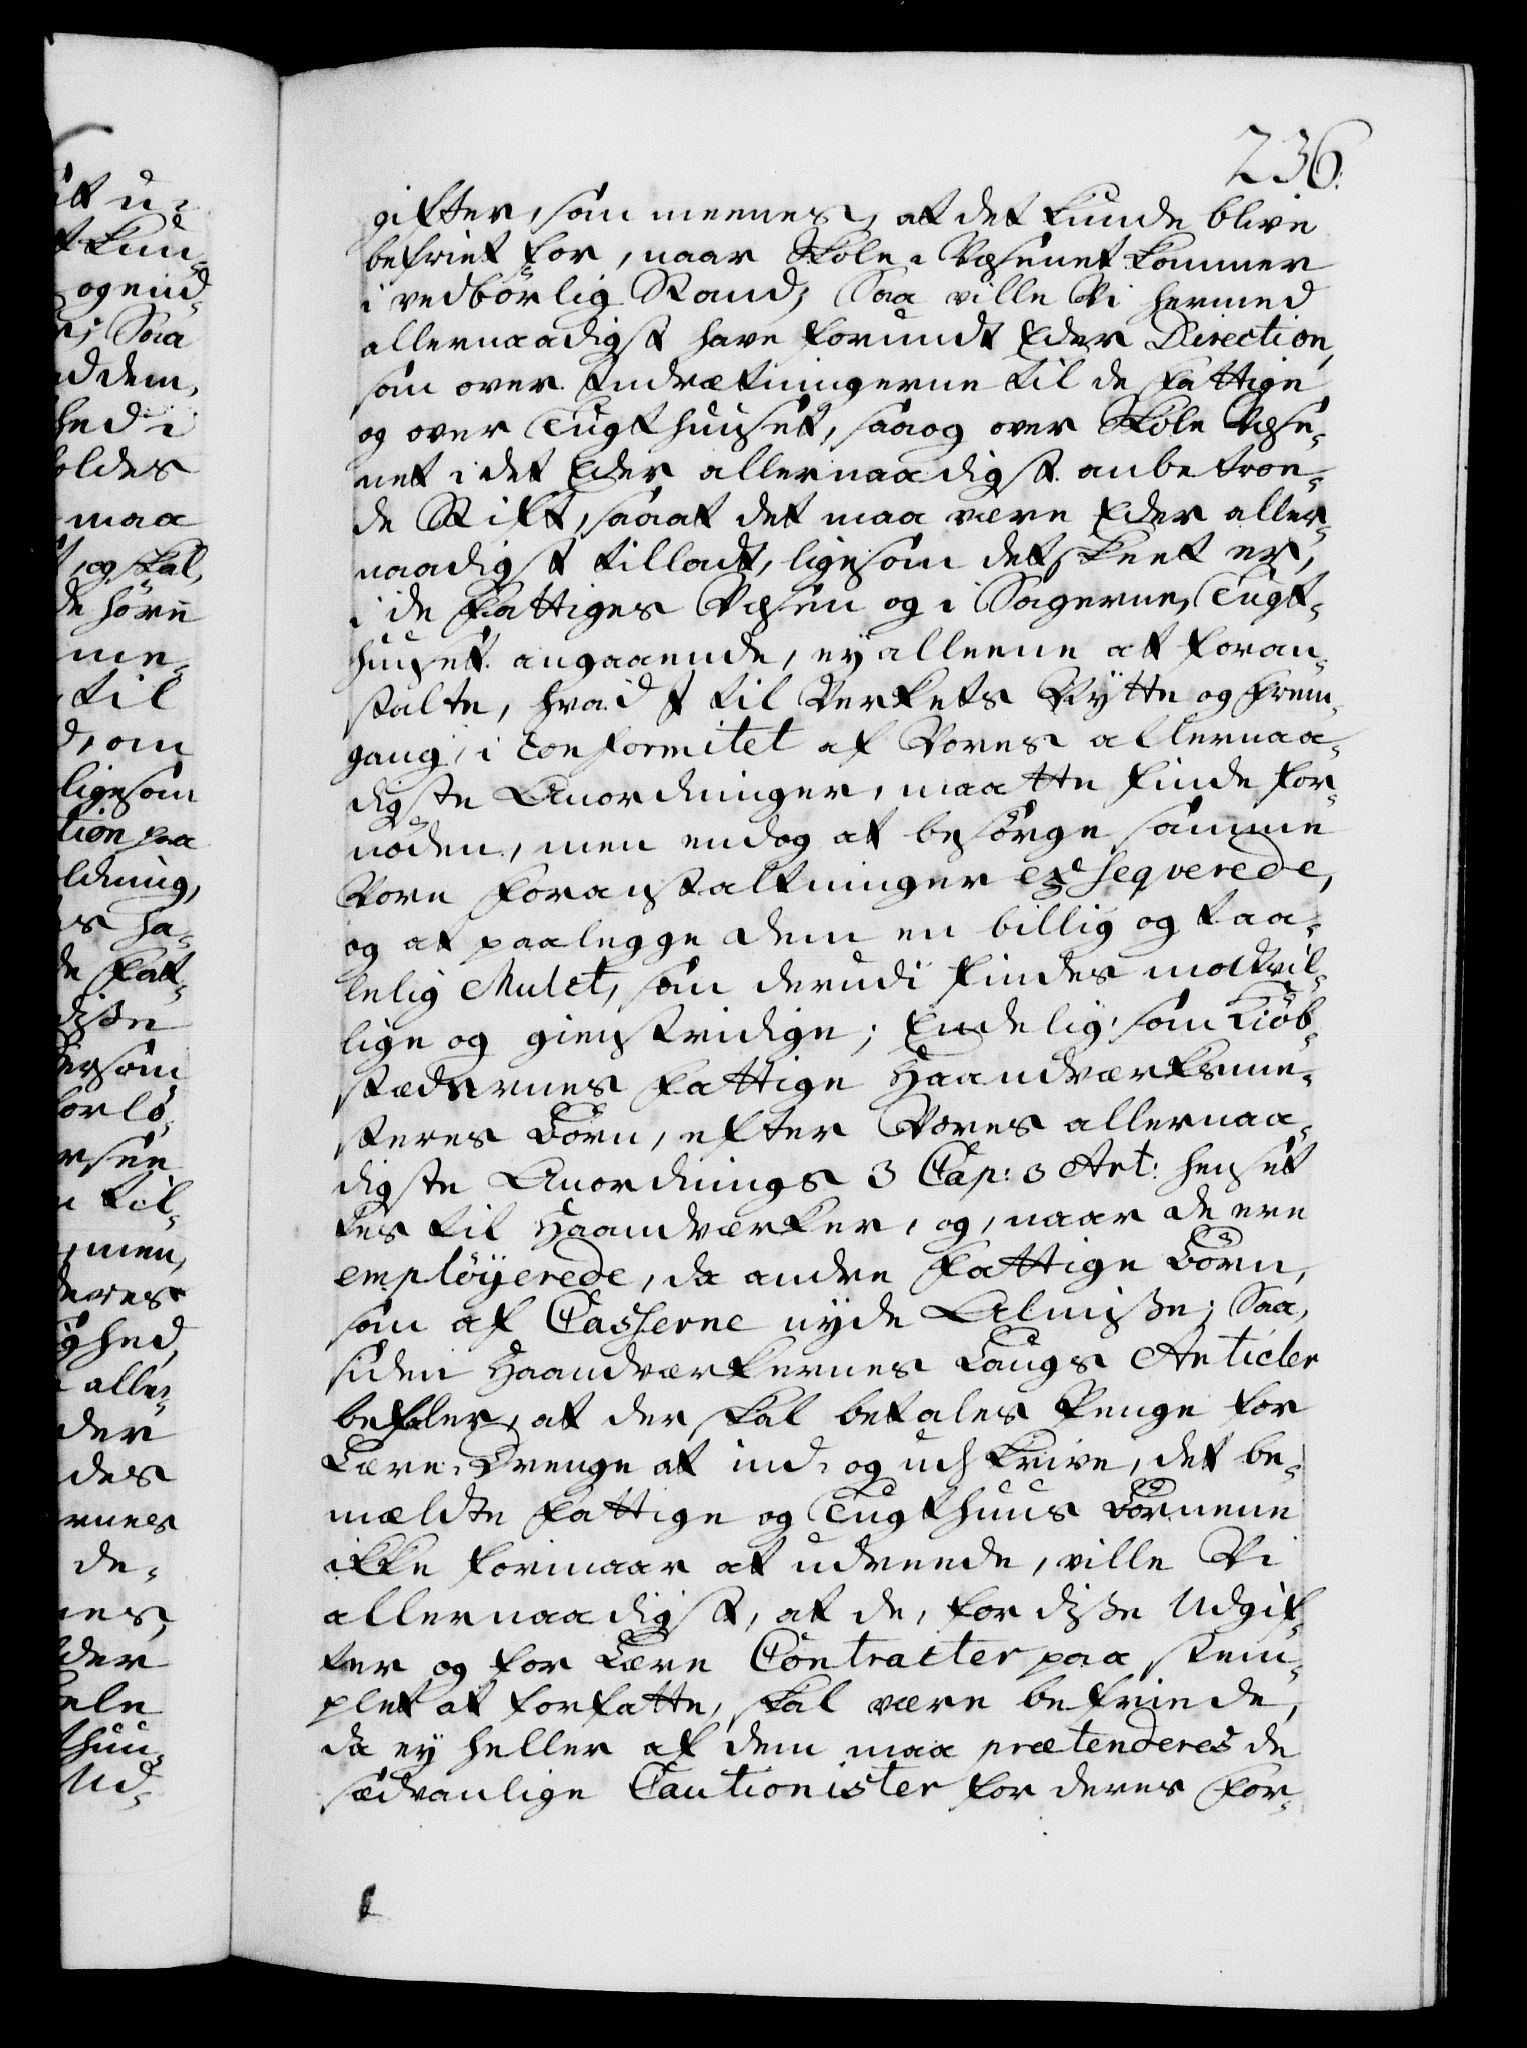 236.
gifter, som meenes, at det kunde blive
befriet for, naar Skole-Væsenet kommer
i vedbörlig Stand; Saa ville Vi hermed
allernaadigst have forundt Eder Direction,
som over Indretningerne til de fattige
og over Tugthuuset, saa og over Skole Væse-
net i det Eder allernaadigst anbetroe-
de Stift, saa at det maa være Eder aller-
naadigst tilladt, ligesom det skeet er,
i de fattiges Væsen og i Sagerne, Tugt-
huuset angaaende, ey alleene at foran-
stalte, hvad I til Verkets Nytte og frem-
gang, i Conformitet af Vores allernaa-
digste Anordninger, maatte finde for-
nöden, men endog at besörge samme
Vore foranstaltninger exseqverede,
og at paalegge dem en billig og taa-
lelig Mulct, som derudi findes modtvil-
lige og gienstridige; Endelig, som Kiöb-
stædernes fattige Haandværksme-
steres Börn, efter Vores allernaa-
digste Anordnings 3 Cap: 3 Art: hensæt
tes til Haandværker, og, naar de ere
emplöyerede, da andre fattige Börn,
som af Casserne nyde Almisse; Saa,
siden Haandværkernes Laugs Articler
befaler, at der skal betales Penge for
Lære-Drenge at ind- og udskrive, det be-
mældte fattige og Tugthuus Börnene
ikke formaar at udreede, ville Vi
allernaadigst, at de, for disse Udgif-
ter og for Lære Contracter paa stem-
plet at forfatte, skal være befriede,
da ey heller af dem maa prætenderes de
sædvanlige Cautionister for deres for-